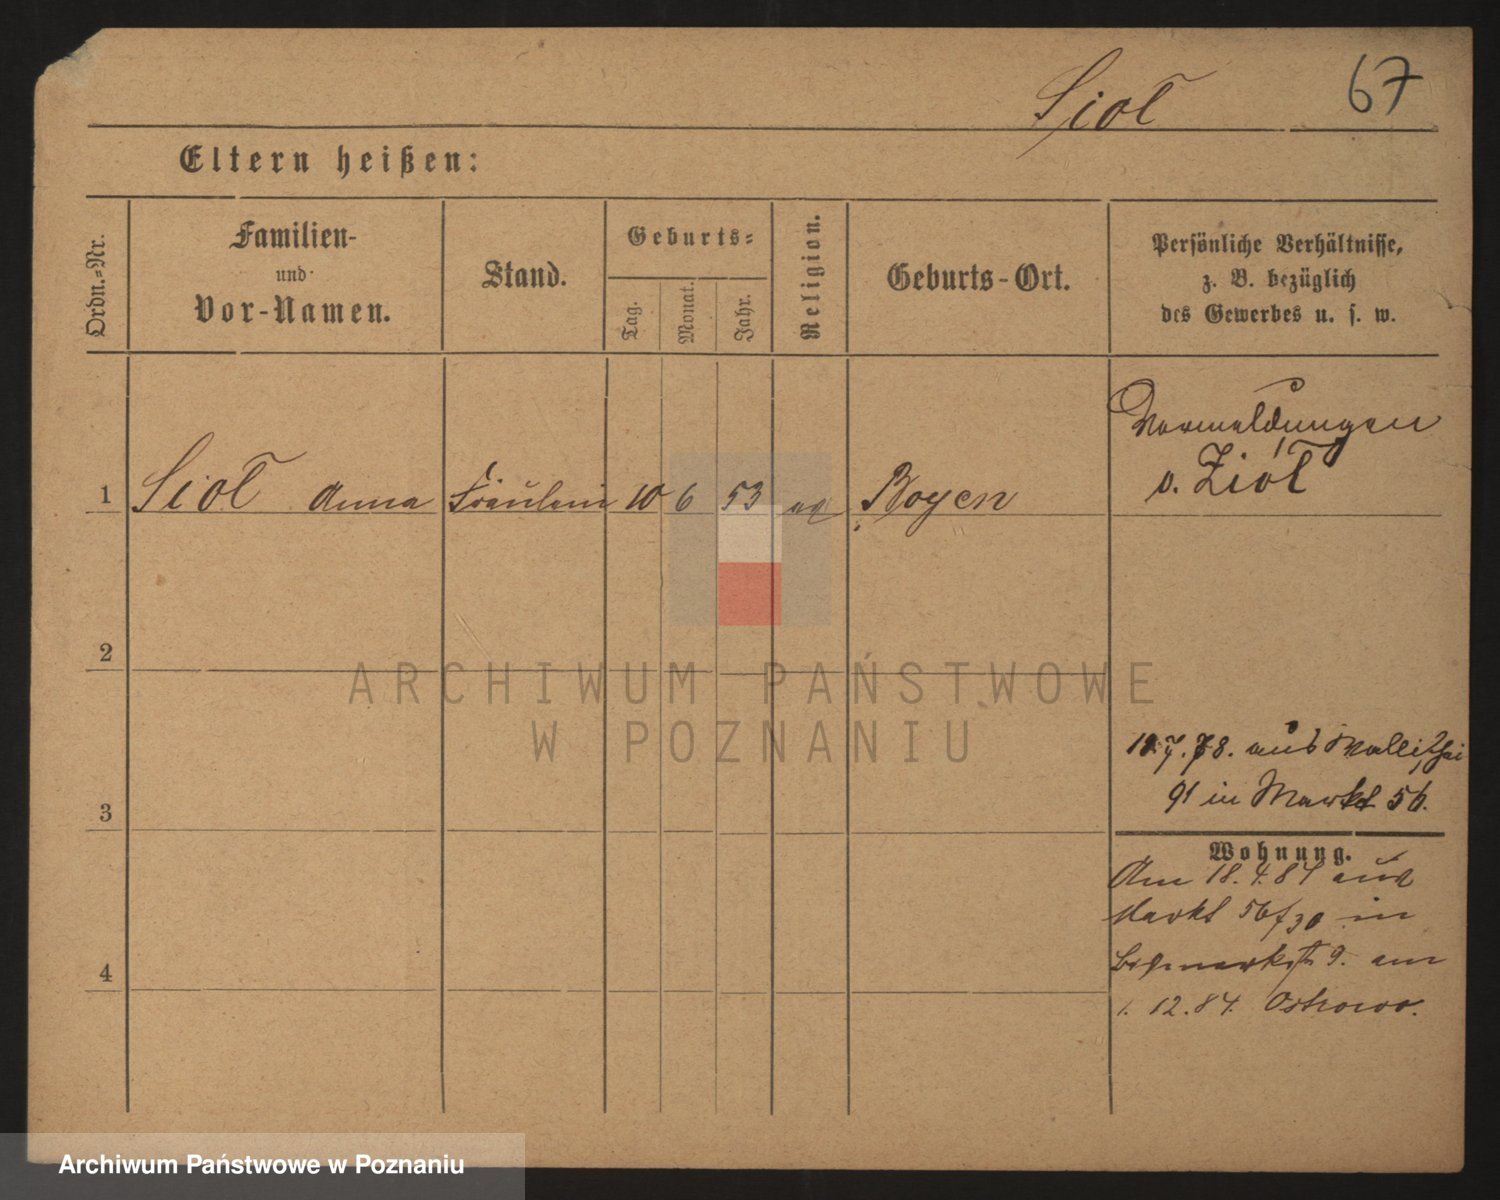 Siol
67
Eltern heißen:
Ordn.=Nr.
Familien-
und
Vor-Namen.
Stand.
Geburts=
Tag.
Monat.
Jahr.
Religion.
Geburts-Ort.
Persönliche Verhältnisse,
z. B. bezüglich
des Gewerbes u. s. w.
Vormeldungen
v. Ziół
1 Siol Anna Fräulein 10 6 53 Boyen
2
ARCHIWUM PAŃSTWOWE
W POZNANIU
7. 78. aus Wallischei
91 in Markt 56.
3
Wohnung.
Am 18.4.84 aus
Markt 56 in
Bismarkstr 9. am
4
1. 12. 84. Ostrowo.
Archiwum Państwowe w Poznaniu